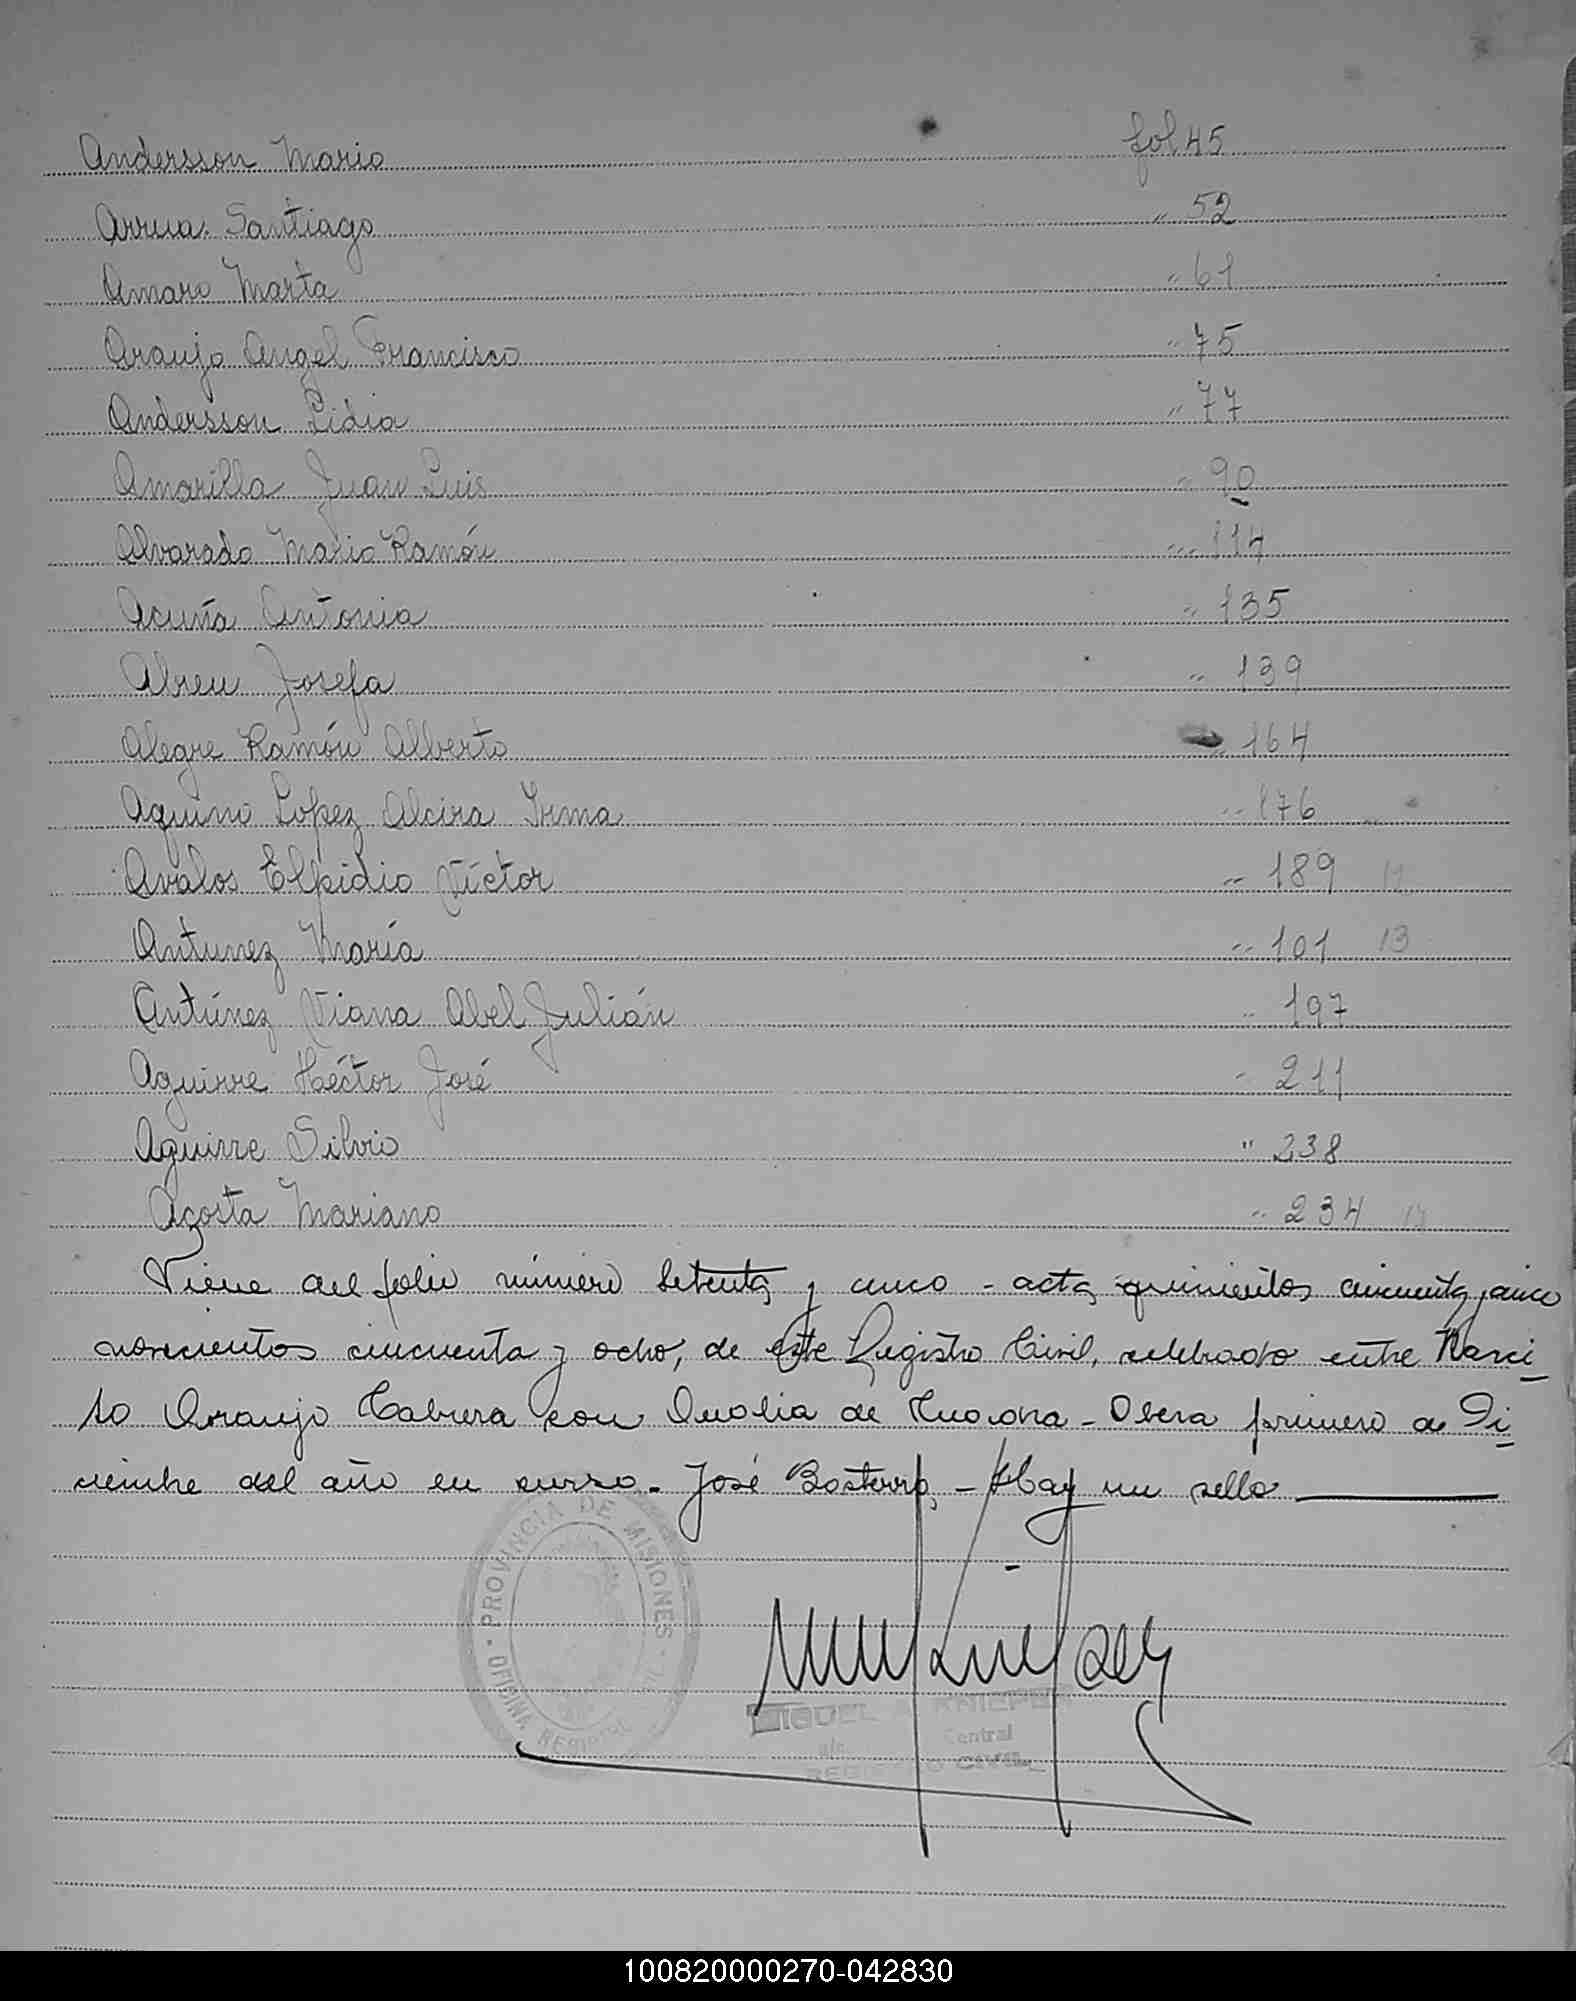 Andersson Mario fol. 45
Arrua Santiago " 52
Amaro Marta " 61
Araujo Angel Francisco " 75
Andersson Lidia " 77
Amarilla Juan Luis " 90
Alvarado Mario Ramón " 114
Acuña Antonia " 135
Abreu Josefa " 139
Alegre Ramón Alberto " 164
Aquino Lopez Alcira Irma " 176
Avalos Elpidio Víctor " 189
Antunez María " 101 13
Antúnez Viana Abel Julián " 197
Aguirre Héctor José " 211
Aguirre Silvio " 238
Acosta Mariano " 234 14
Viene del folio número setenta y cinco - acta quinientos cincuenta y cinco
novecientos cincuenta y ocho, de este Registro Civil, celebrado entre Narci-
so Araujo Cabrera con de - Obera primero de Di-
ciembre del año en curso - José - Hay un sello
PROVINCIA DE MISIONES
OFICINA REGISTRO CIVIL
MIGUEL A. KNIEPER
a/c Central
REGISTRO CIVIL
100820000270-042830